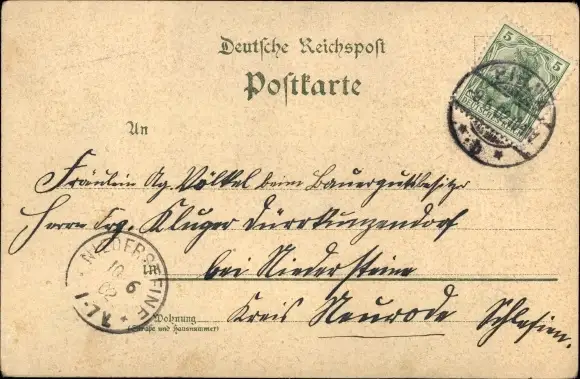 Deutsche Reichspost
Postkarte
5 5
An
Fräulein Ag. Völkel beim Bauergutsbesitzer
Herrn Aug. Kluger Dürrkunzendorf
in bei Niedersteine
Kreis Neurode Schlesien.
NIEDERSTEINE
10 6
02
1-7N
Wohnung
(Straße und Hausnummer)